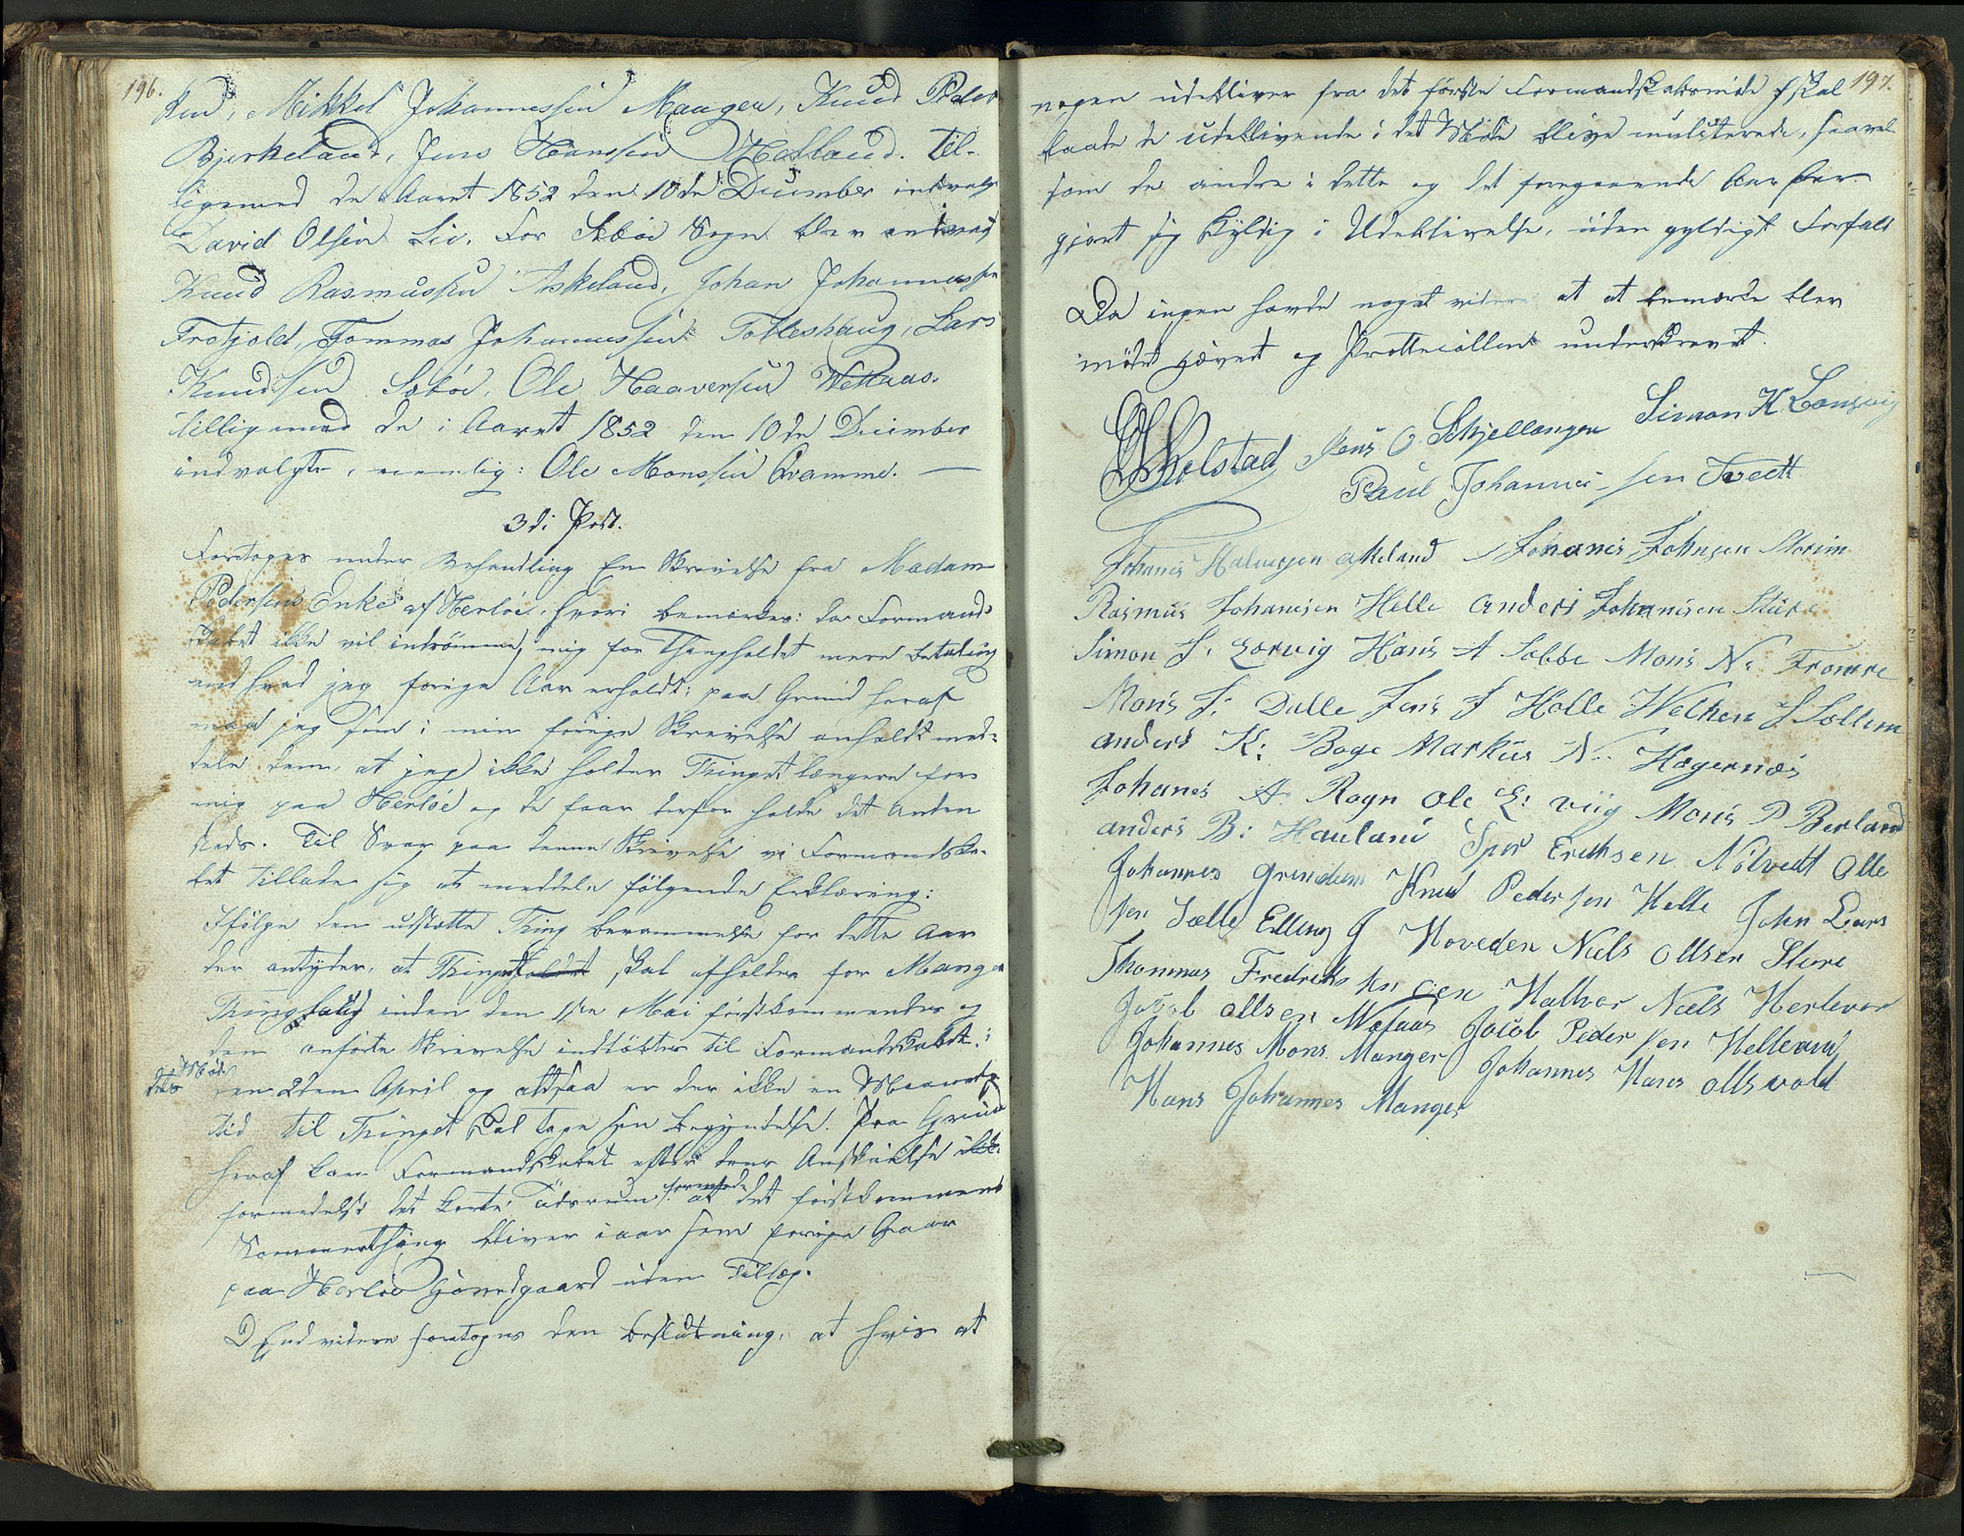 196.
sen, Mikkel Johannessen Manger, Knud Peder
Bjerkeland, Jens Hanssen Hatland. Til-
ligemed de Aaret 1852 den 10de December indvalgt
David Olsen Lie. For Sæbøe Sogn blev
Knud Rasmussen Askeland, Johan Johannessen
Frotjold, Tommas Johannessen Tobleshaug, Lars
Knudsen Sæbøe, Ole Haaversen
tilligemed de i Aaret 1852 den 10de December
indvalgte, nemlig: Ole Monssen Qvamme.
3di Post.
Foretoges under Behandling En Skrivelse fra Madam
Pedersens Enke af Herløe, hvori bemærkes: da Formand-
skabet ikke vil indrømme mig for Thingholdet mere betaling
end hvad jeg forrige Aar erholdt; paa Grund heraf
maa jeg som i min forrige Skrivelse anholdt med-
dele dem, at jeg ikke holder Thinget længere hos
mig paa Herløe og de faar derfor holde det anden
steds. Til Svar paa denne Skrivelse vi Formandska-
bet tillader sig at meddele følgende Erklæring:
Ifølge den udsatte Thing berammelse for dette Aar
der antyder, at Thinget skal afholdes for Manger
Thinglaug inden den Mai førstkommendes og
den anførte Skrivelse indløbtes til Formandskabet
dets Møde
den 2den April og altsaa er der ikke en Maaneds
tid til Thinget skal tage sin begyndelse. Paa Grund
heraf kan Formandskabet efter dens Anskuelse ikke
formedelst det korte Tidsrum at det førstkommende
Sommerthing bliver iaar som forrige Aar
paa Herløe Gjæstgaard uden Tillæg.
Endvidere foretoges den beslutning, at hvis at
197.
nogen udebliver fra det første Formandskabsmøde skal
baade de udeblivende i det Møde blive mulcterede, saavel
som de andre i dette og det foregaaende Aar har
gjort sig skyldig i Udeblivelse, uden gyldigt Forfald
Da ingen havde noget videre at at bemærke blev
mødet hævet og Prottecollen underskrevet.
Kolstad Jens O Skjellanger Simon K Langøig
Paul Johannes-sen Tvedt
Johanes Halvorsen askeland Johanes Johnsen Morim
Rasmus Johanesen Helle anders Johanesen Sture
Simon S. Lorvig Hans A Sabbe Mons N: Fromre
Mons J: Dalle Jens J Holle Welken J Sællem
anders K: Boge Markus N.. Hægernæs
Johanes A. Rogn Ole L: viig Mons P Berland
anders B: Hauland Sjur Eriksen Nölvedt Olle
Johannes Grindem Knud Pedersen Helle John Lars
sen Sælle Elling J Hoveden Niels Ollsen Sture
Thommas Fredrikssen oen Halver Niels Herlever
Jacob ollsen Jacob Pedersen Hellesund
Johannes Mons. Manger Johannes Hans ollsvold
Hans Johannes Manger